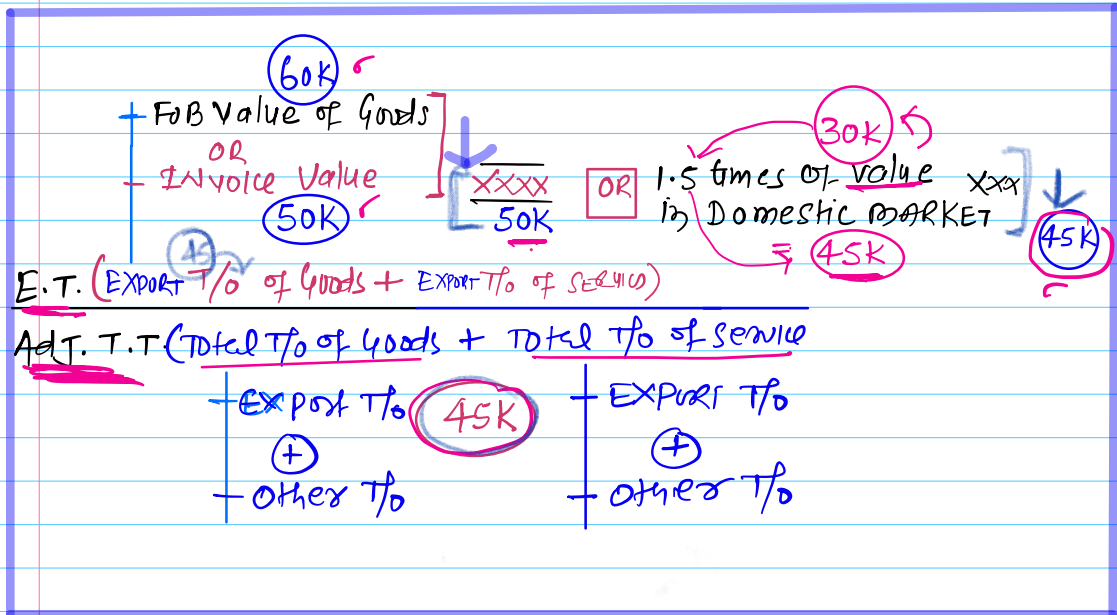 60K
FOB Value of Goods
OR
INVOICE Value
50K
XXXX
50K
OR
30K
1.5 times of value XXX
in DOMESTIC MARKET
45K
45K
45
E.T. (EXPORT T/O of Goods + EXPORT T/O OF SERVICES)
Adj. T.T. (Total T/O of Goods + Total T/O of Service
Export T/O 45K EXPORT T/O
+ +
Other T/O Other T/O